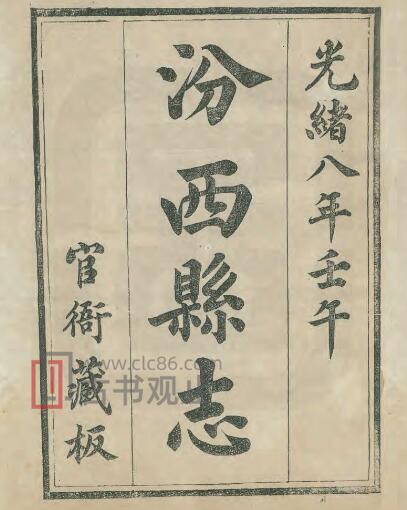 光緒八年壬午
汾西縣志
官衙藏板
www.clc86.com
古书观止